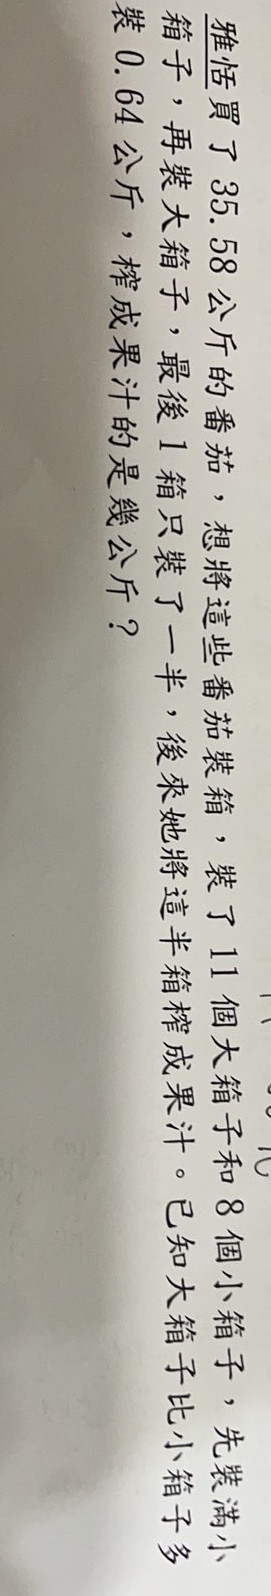 雅恬買了 35.58 公斤的番茄，想將這些番茄裝箱，裝了 11 個大箱子和 8 個小箱子，先裝滿小
箱子，再裝大箱子，最後 1 箱只裝了一半，後來她將這半箱榨成果汁。已知大箱子比小箱子多
裝 0.64 公斤，榨成果汁的是幾公斤？